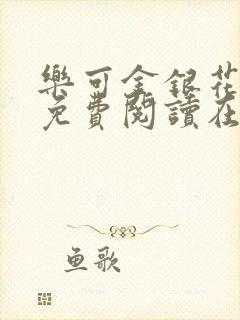 樂可金銀花
免費閱讀在
鱼歌